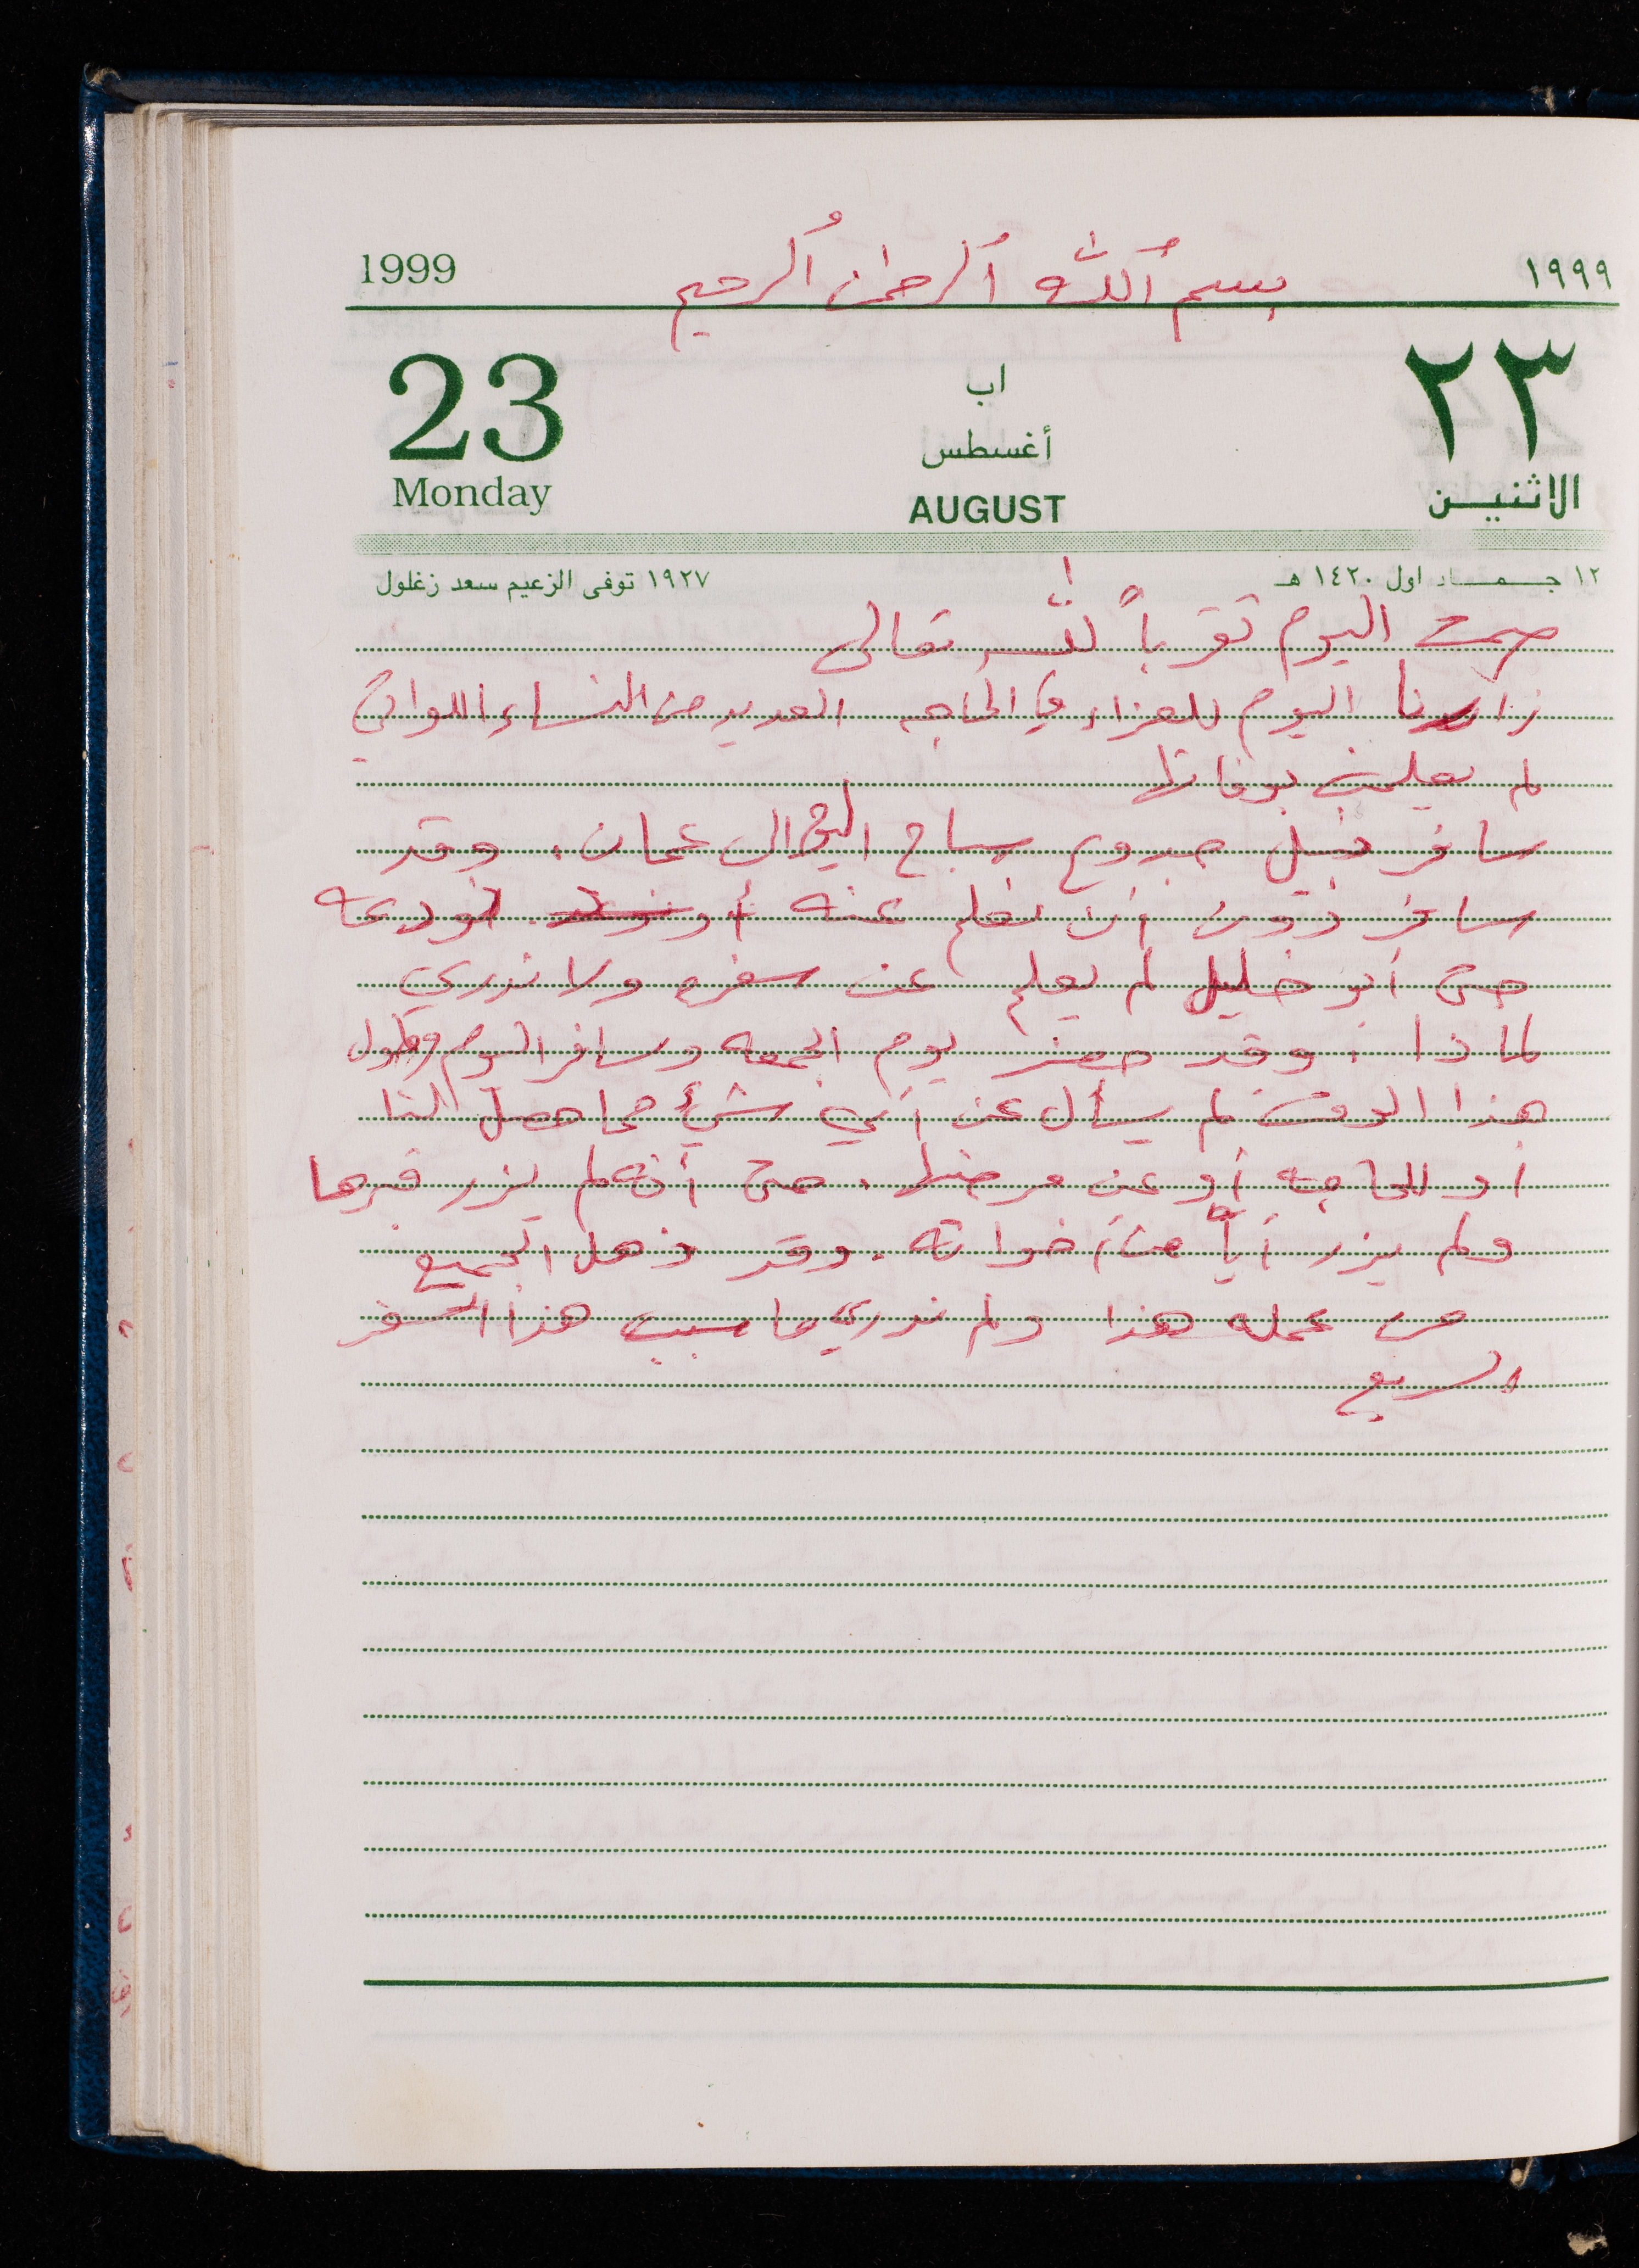 1999 بسم ٱللّٰه ٱلرحمٰن ٱلرحيم ١٩٩٩
23 اب ٢٣
Monday أغسطس الاثنيـن
AUGUST
١٢ جمـاد اول ١٤٢٠ هـ ١٩٢٧ توفى الزعيم سعد زغلول
صمت اليوم تقرباً للّٰه تعالى
زارنا اليوم للعزاء في الحاجه العديد من النساء اللواتي
لم يعلمن بوفاتها
سافر صباح اليوم الى عمان. وقد
سافر دون ان نعلم عنه أو نودعه
حتى أبو خليل لم يعلم عن سفره ولا ندري
لماذا. وقد حضر يوم الجمعه وسافر اليوم وطول
هذا الوقت لم يسأل عن أي شيء مما حصل لنا
أو للحاجه أو عن مرضها. حتى أنه لم يزر قبرها
ولم يزر أياً من أخواته. وقد ذهل الجميع
من عمله هذا ولم ندري ما سبب هذا السفر
السريع